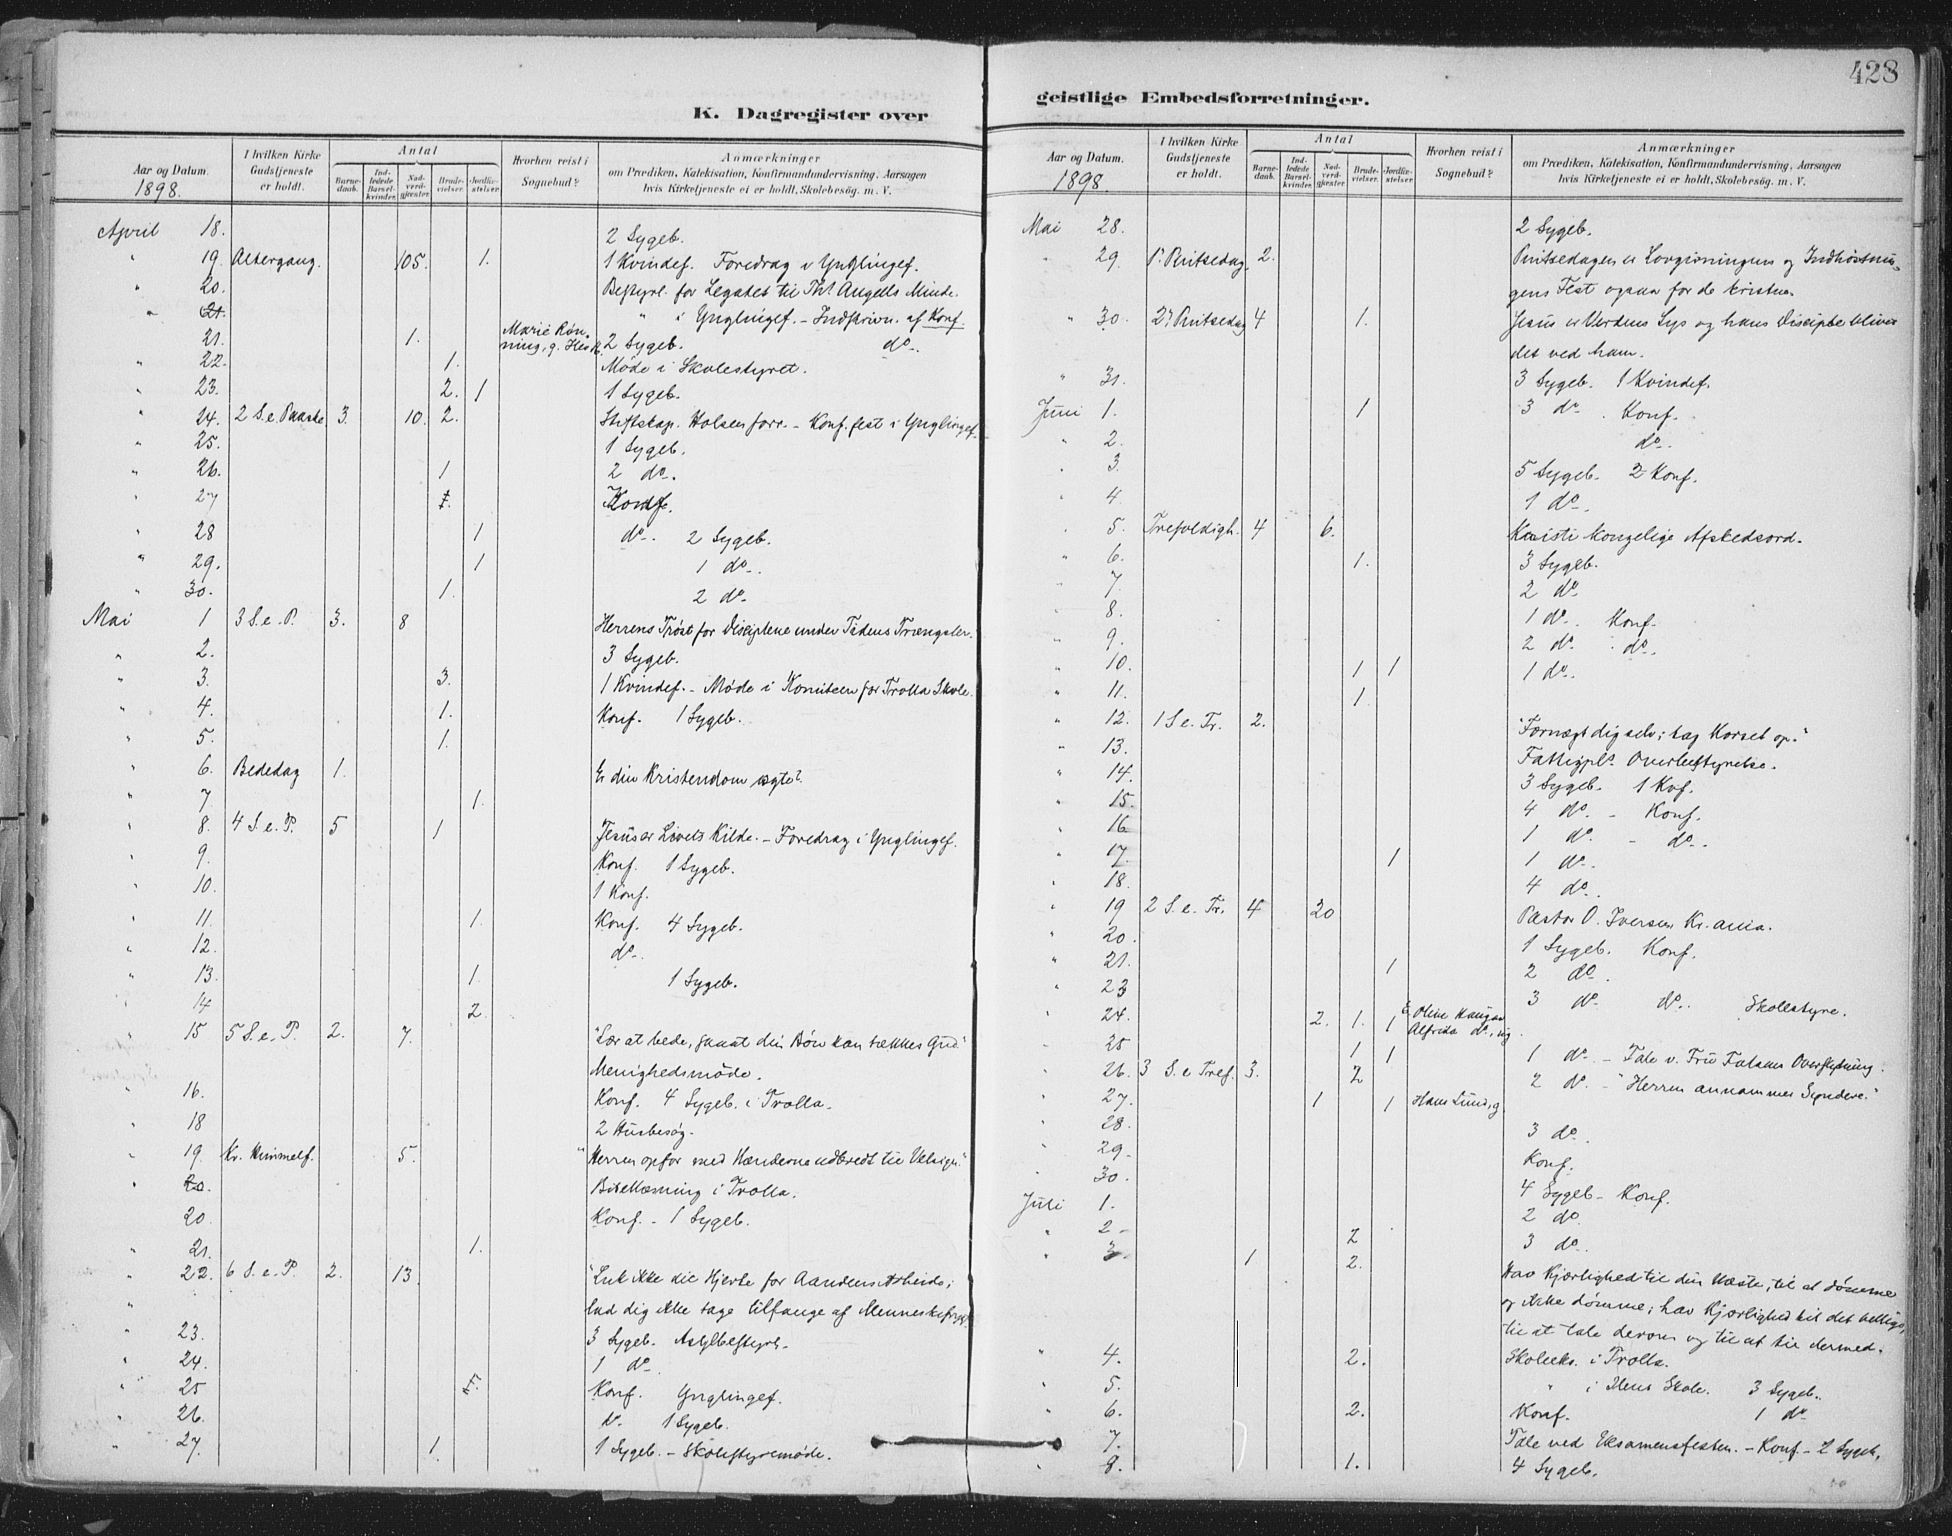 428
K. Dagregister over
Aar og Datum. I hvilken Kirke Gudstjeneste er holdt. Antal Barnedaab. Indledede Barselkvinder. Nadverdgjester. Brudevielser. Jordfæstelser. Hvorhen reist i Sognebud? Anmærkninger om Prædiken, Katekisation, Konfirmandundervisning, Aarsagen hvis Kirketjeneste ei er holdt, Skolebesøg. m. V.
1898.
April 18. 2 Sygeb.
" 19. Altergang. 105. 1. 1 Kvindef. Foredrag i Ynglingef.
" 20. Bestyrl. for Legatet til Ths Angells Minde.
" 21. " i Ynglingef. - Indskrivn. af Konf.
21. 1. Marie Røn-
ning, g. 2 Sygeb. do.
" 22. 1. Møde i Skolestyret.
" 23. 2. 1 1 Sygeb.
" 24. 2 S. e. Paaske 3. 10. 2. Stiftskap. Holsen forr. - Konf. fest i Ynglingef.
" 25. 1 Sygeb.
" 26. 1 2 do.
" 27 Konf.
" 28 1 do. 2 Sygeb.
" 29. 1 1 do.
" 30. 1. 2 do.
Mai 1 3 S. e. P. 3. 8 Herrens Trøst for Disciplene under Tidens Trængsler.
" 2. 3 Sygeb.
" 3. 3. 1 Kvindef. - Møde i Komiteen for Trolla Skole.
" 4. 1. Konf. 1 Sygeb.
" 5. 1.
" 6. Bededag 1. Er din Kristendom ægte?
" 7 1.
" 8. 4 S. e. P. 5 1 Jesus er Livets Kilde. - Foredrag i Ynglingef.
" 9. Konf. 1 Sygeb.
" 10. 1 Konf.
" 11. 1. Konf. 4 Sygeb.
" 12. do.
" 13. 1. 1 Sygeb.
" 14 2.
" 15 5 S. e. P. 2. 7. "Lær at bede, saaat din Bøn kan tækkes Gud"
Menighedsmøde.
" 16. Konf. 4 Sygeb. i Trolla.
" 18 2 Husbesøg.
" 19. Kr. Himmelf. 5. "Herren opfor med Hænderne udbredt til Velsign."
" 20. Bibellæsning i Trolla.
20. Konf. - 1 Sygeb.
" 21. 1.
" 22. 6 S. e. P. 2. 13. "Luk ikke dit Hjerte for Aandens Arbeide;
" lad dig ikke tage tilfange af Menneskefrygt.
" 23. 3 Sygeb. Asylbestyrl.
" 24. 1 do.
" 25 Konf. Ynglingef.
" 26. do. 1 Sygeb.
" 27. 1. 1 Sygeb. - Skolestyremøde.
geistlige Embedsforretninger.
Aar og Datum. I hvilken Kirke Gudstjeneste er holdt. Antal Barnedaab. Indledede Barselkvinder. Nadverdgjester. Brudevielser. Jordfæstelser. Hvorhen reist i Sognebud? Anmærkninger om Prædiken, Katekisation, Konfirmandundervisning, Aarsagen hvis Kirketjeneste ei er holdt, Skolebesøg. m. V.
1898
Mai 28. 2 Sygeb.
" 29. 1ste Pintsedag. 2. Pintsedagen er Lovgivningens og Indhøstnin-
gens Fest ogsaa for de kristne.
" 30. 2. Pintsedag 4 1. Jesus er Verdens Lys og hans Disciple bliver
det ved ham.
" 31. 3 Sygeb. 1 Kvindef.
Juni 1. 1 3 do. Konf.
" 2. do.
" 3. 5 Sygeb. 2 Konf.
" 4 1 do.
" 5. Trefoldigh. 4 6. Kristi kongelige Afskedsord.
" 6. 1. 3 Sygeb.
" 7 2 do.
" 8. 1 do. Konf.
" 9. 2 do. do.
" 10. 1 1 1 do.
" 11. 1.
" 12. 1 S. e. Tr. 2. "Fornægt dig selv; tag Korset op."
" 13. Fattigpl. Overbestyrelse.
" 14. 3 Sygeb. 1 Kvf.
" 15. 4 do. - Konf.
" 16 1 do. - do.
" 17. 1 1 do.
" 18. 4 do.
" 19 2 S. e. Tr. 4 20 Pastor O. Iversen Kr.ania.
" 20. 1 Sygeb. Konf.
" 21. 1 2 do.
" 23 3 do. do. Skolestyre.
" 24. 2. 1. 1 Olive Haugan
Alfrida do., ug.
" 25 1 1 1 do. - Tale v. Fru
" 26. 3 S. e Tref. 3. 2 2 do. - "Herren annammer Syndere."
" 27. 1 1 Hans Lund, g
" 28. 3 do.
" 29. Konf.
" 30. 4 Sygeb - Konf.
Juli 1. 2 do.
" 2 2 3 do.
" 3. 1 2. Hav Kjærlighed til din Næste, til at dømme
og ikke dømme; hav Kjærlighed til det hellige,
til at tale derom og til at tie dermed.
" 4. 2. Skoleeks. i Trolla.
" 5. " i Ilens Skole. 3 Sygeb.
" 6. 2. Konf. 1 do.
" 7. Tale ved Eksamensfesten. - Konf - 2 Sygeb.
" 8. 1. 4 Sygeb.